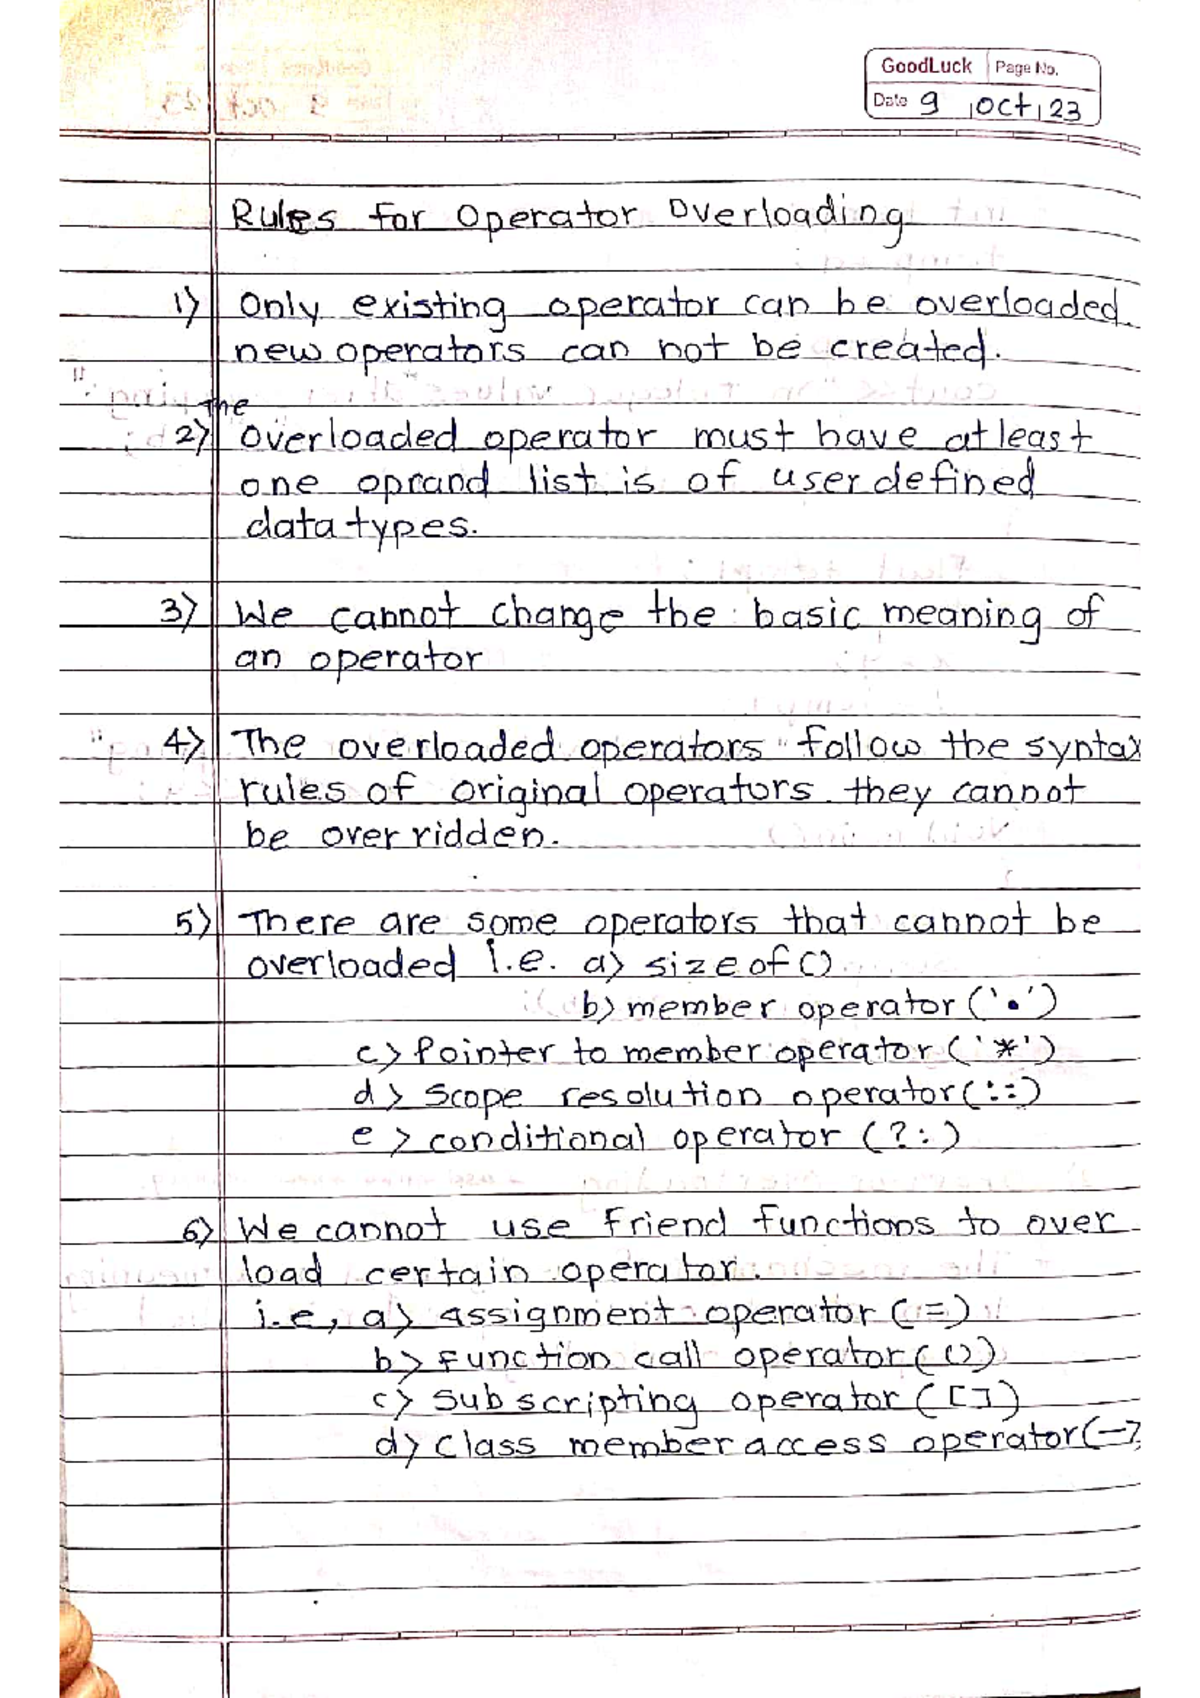 GoodLuck Page No.
Date 9 Oct 23
Rules for Operator Overloading
1) Only existing operator can be overloaded.
new operators can not be created.
The
2) Overloaded operator must have atleast
one oprand list is of user defined
data types.
3) We cannot change the basic meaning of
an operator
4) The overloaded operators follow the syntax
rules of original operators. they cannot
be over ridden.
5) There are some operators that cannot be
overloaded i.e. a) sizeof()
b) member operator ('.')
c) Pointer to member operator ('*')
d) Scope resolution operator (::)
e) conditional operator (?:)
6) We cannot use friend functions to over
load certain operator.
i.e, a) assignment operator (=)
b) Function call operator (())
c) Sub scripting operator ([])
d) class member access operator (->